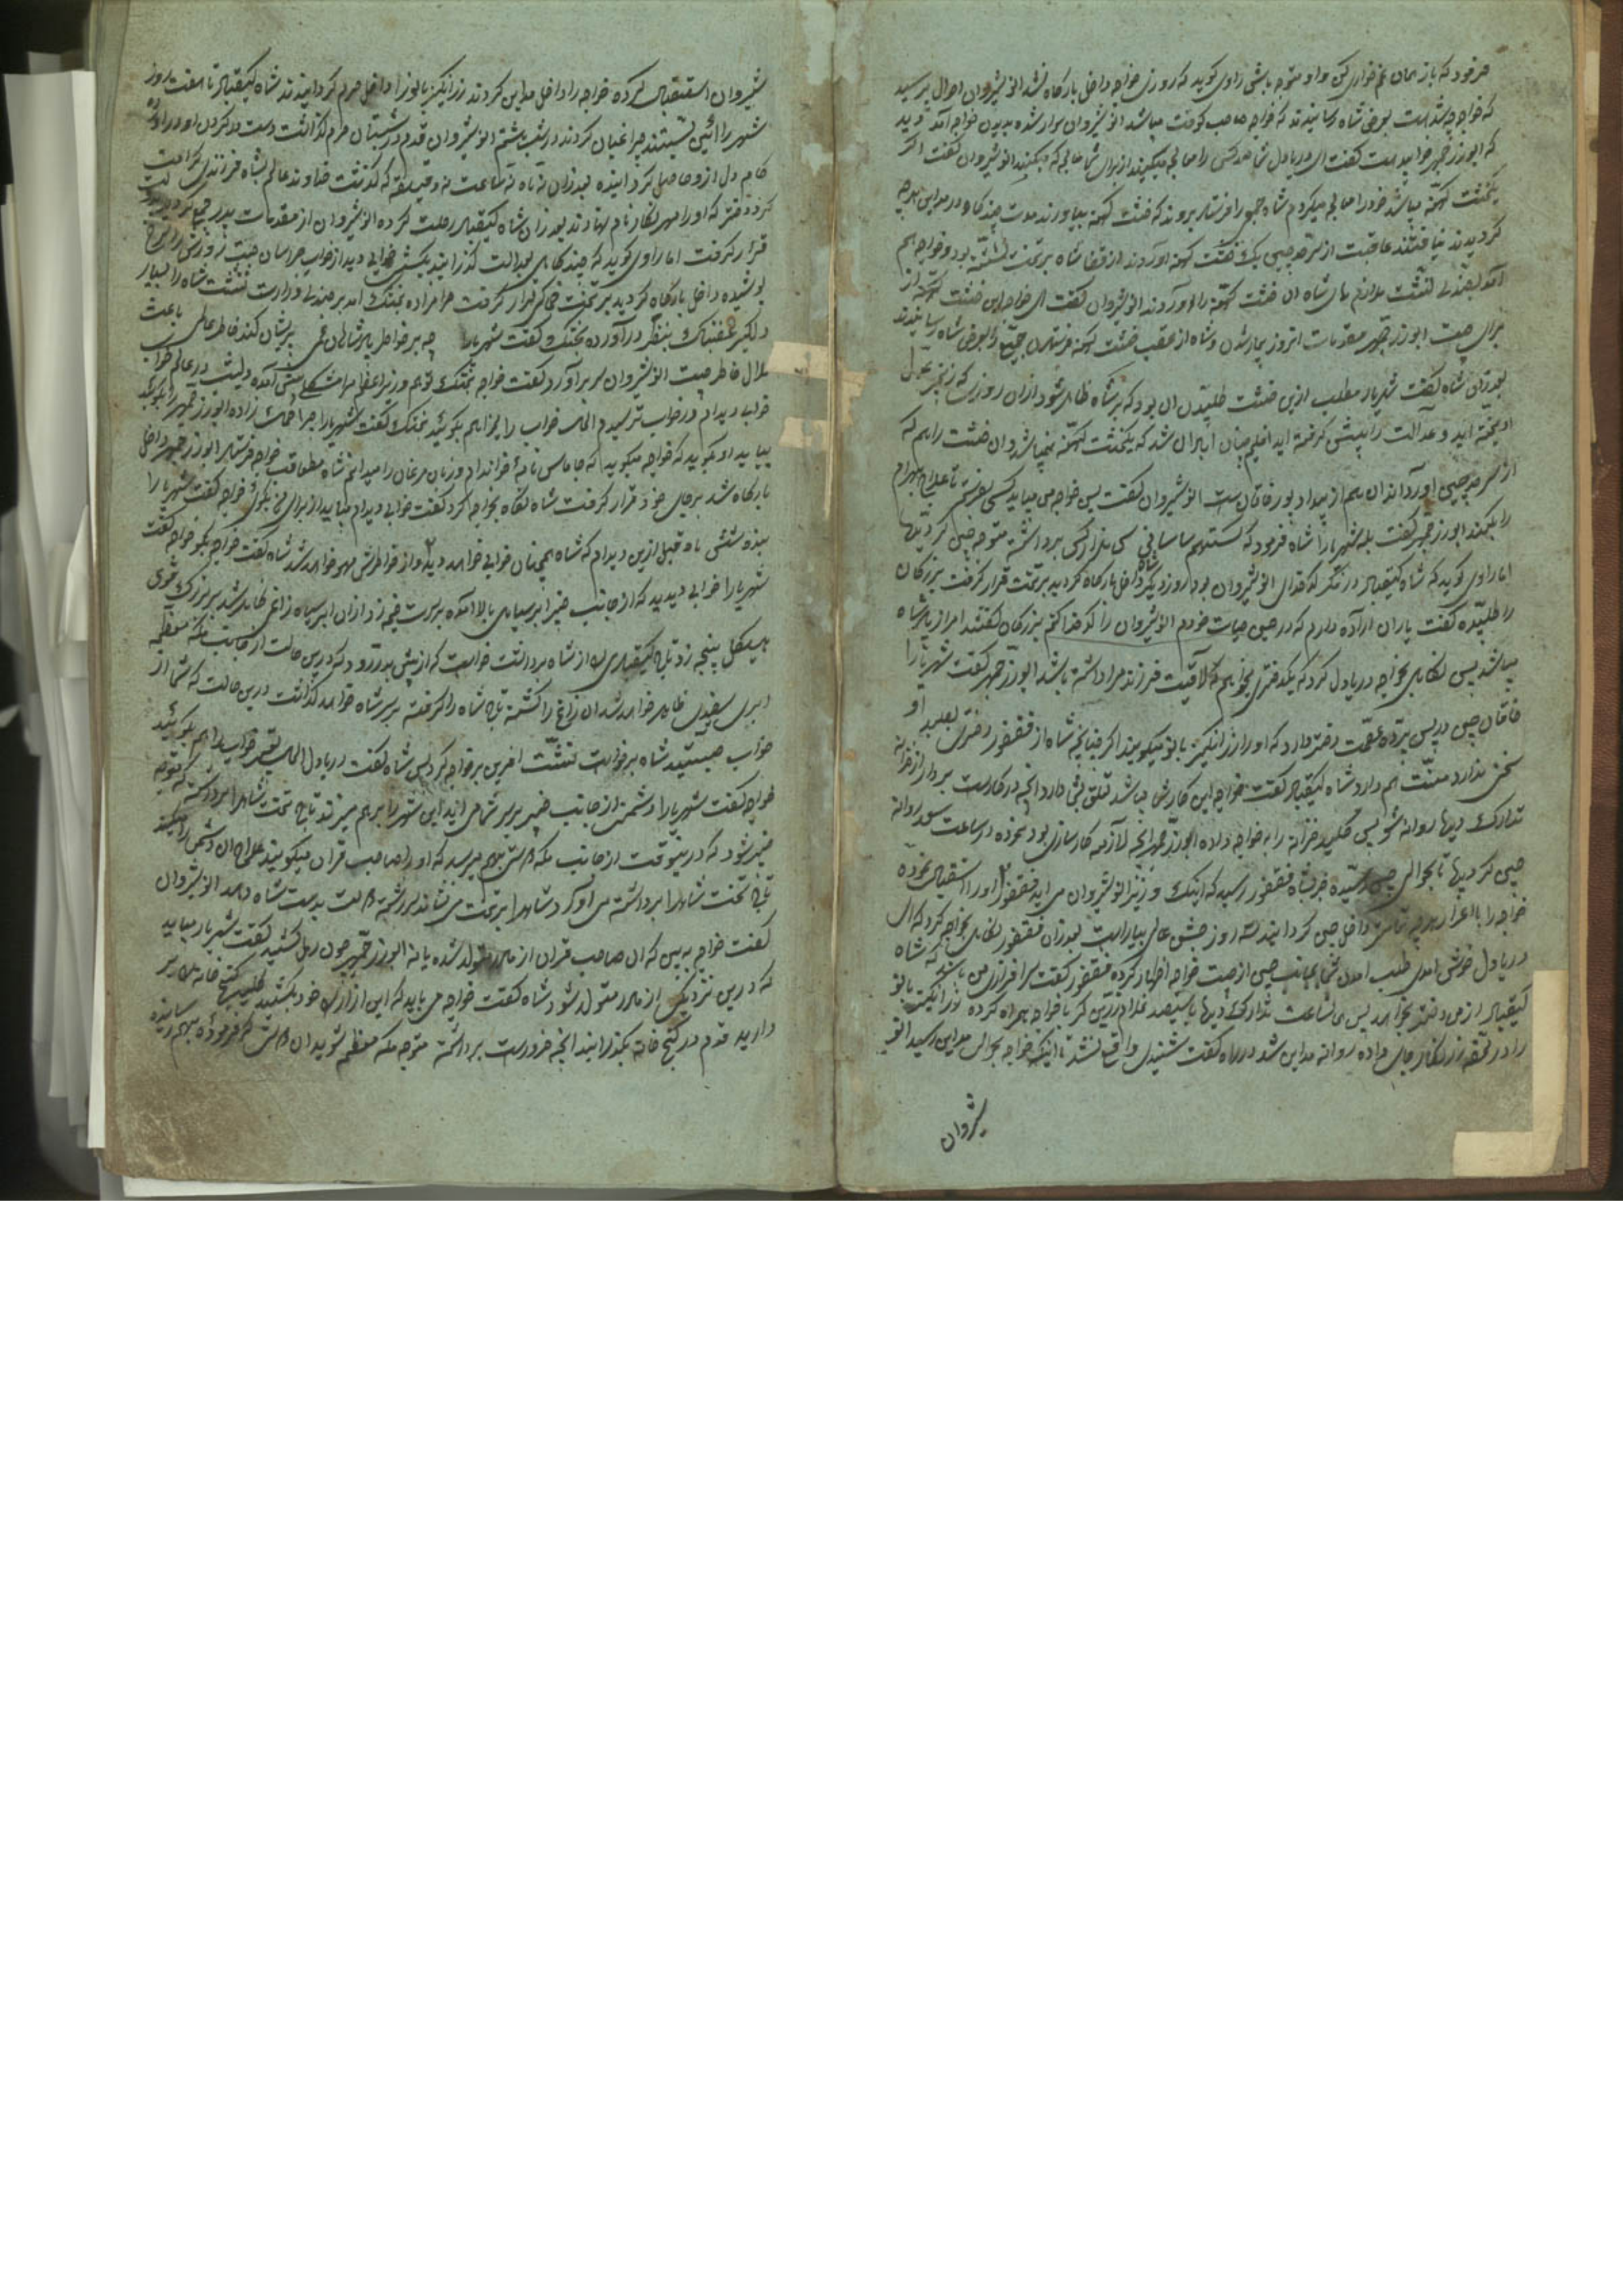 فرمود که باز همان غم خواری کن و او متوجه باشی راوی گوید که روزی خواجه داخل بارگاه نشد انوشیروان احوال پرسید
که خواجه چه شد است بعرض شاه رسانیدند که خواجه صاحب کوفت میباشد انوشیروان سوار شده بدیدن خواجه آمد دید
که ابوزرجمهر خوابیده است گفت ای دریادل شما همه کس را معالجه میکنید از برای شما معالجه که میکند انوشیروان گفت اگر
یکخشت کهنه میباشد خود را معالجه میکردم شاه فرستاد بروند که خشت کهنه بیاورند مدت چند گاه در مداین هرچه
گردیدند نیافتند عاقبت از سرحد چین یک خشت کهنه آوردند از قضا شاه بر تخت نشسته بود و خواجه هم
آمد بصندلی نشست ملازم های شاه آن خشت کهنه را آوردند انوشیروان گفت ای خواجه این خشت کهنه از
برای چیست ابوزرجمهر مقدمات آنروز بیمار شدن و شاه از عقب خشت کهنه فرستادن جمیع را بعرض شاه رسانیدند
بعد از آن شاه گفت شهریار مطلب ازین خشت طلبیدن آن بود که بر شاه ظاهر شود از آن روزی که زنجیر عدل
آویخته اید و عدالت را پیش گرفته اید اقلیم چنان آبادان شد که یکخشت کهنه نمیباشد و آن خشت را هم که
از سرحد چین آوردند آن هم از بیداد بود خاقان است انوشیروان گفت پس خواجه می باید کسی بفرستم تا علاج بهرام
را بکند ابوزرجمهر گفت بله شهریارا شاه فرمود که گستهم ساسانی سی هزار کس برداشته متوجه چین گردید
اما راوی گوید که شاه کیقباد در فکر کدخدای انوشیروان بود روز دیگر داخل بارگاه گردید بر تخت قرار گرفت بزرگان
را طلبیده گفت یاران اراده دارم که در حین حیات خودم انوشیروان را کدخدا کنم بزرگان گفتند امر از پادشاه
میباشد پس نگاهی بخواجه دریادل کرد که یکدختری بخواهیم که لاقیت فرزند مرا داشته باشد ابوزرجمهر گفت شهریارا
خاقان چین در پس پرده عصمت دختر دارد که او را زرانگیز بانو میگویند اگر چنانچه شاه از فغفور دختری بطلبد او
سخن ندارد منت هم دارد شاه کیقباد گفت خواجه این کار شما میباشد تعلق بشما دارد آنچه در کار است بردار از خزانه
تدارک دیده روانه شو پس کلید خزانه را به خواجه داده ابوزرجمهر آنچه لازمه کارسازی بود نموده در ساعت سعد روانه
چین گردید تا بحوالی چین رسیده خبر بشاه فغفور رسید که اینک وزیر انوشیروان می آید فغفور او را استقبال نموده
خواجه را با اعزاز هرچه تمامتر داخل چین گردانیدند سه روز جشن عالی بیاراست بعد از آن فغفور نگاهی بخواجه کرد که ای
دریادل خوش آمدی طلب آمدن شما بجانب چین از چیست خواجه اظهار کرده فغفور گفت سرافرازی من باشد که شاه
کیقباد از من دختر بخواهد پس همان ساعت تدارک دیده با سیصد غلام زرین کمر با خواجه همراه کرده زرانگیز بانو
را در تخت زرنگار جای داده روانه مداین شد در راه گفت شنیدی واقع نشد تا اینکه خواجه بحوالی مداین رسید انو
شیروان
شیروان استقبال کرده خواجه را داخل مداین کردند زرانگیز بانو را داخل حرم گردانیدند شاه کیقباد تا هفت روز
شهر را آئین بستند چراغبان کردند در شب هشتم انوشیروان قدم در شبستان حرم گذاشت دست در گردن او درآورده
کام دل از او حاصل گردانیده بعد از آن نه ماه نه ساعت نه دقیقه که گذشت خداوند عالم بشاه فرزندی کرامت
کرد دختر که او را مهرنگار نام نهادند بعد از آن شاه کیقباد رحلت کرده انوشیروان از مقدمات پدر
قرار گرفت اما راوی گوید که چند گاهی بعدالت گذرانید یکشب خوابی دید از خواب هراسان جست نه روزش را سرخ
پوشیده داخل بارگاه گردید بر تخت قرار گرفت حرامزاده بختک آمد بر صندلی وزارت نشست شاه را بسیار
دلگیر غضبناک بنظر درآورده بختک گفت شهریارا چه بر خاطر پادشاهان غمی پریشان کند خاطر عالمی باعث
ملال خاطر چیست انوشیروان سر برآورد گفت خواجه بختک تو هم وزیر اعظم مرا مشکلی پیش آمده دیشب در عالم خواب
خوابی دیدم در خواب ترسیدم الحال خواب را میخواهم بگوئید بختک گفت شهریارا چرا حکمت زاده ابوزرجمهر را نگویید
بیاید او بگوید که خواجه میگوید که جاماس نامه خوانده ام و زبان مرغان را میدانم شاه عقب خواجه فرستاد ابوزرجمهر داخل
بارگاه شد بر جای خود قرار گرفت شاه نگاه بخواجه کرد گفت خوابی دیدم میباید از برای من بگوئی خواجه گفت شهریارا
بنده شش ماه قبل ازین دیدم که شاه همچنان خوابی خواهد دید و از خاطرش محو خواهد شد شاه گفت خواجه بگو خواجه گفت
شهریارا خوابی دیدید که از جانب خیبر ابر سیاهی بالا آمده بسرت خیمه زد از آن ابر سیاه زاغی ظاهر شد بر بزرگی
هیکل پنجه زد تاج کیقبادی را از شاه برداشت خواست که از پیش بدر رود که درین حالت از جانب مکه معظمه
ابری سفیدی ظاهر خواهد شد آن زاغ را کشته تاج شاه را گرفته بر سر شاه خواهد گذاشت درین حالت که شما از
خواب جستید شاه برخواست نشست آفرین بر خواجه کرد پس شاه گفت دریادل الحال تعبیر خواب را هم بگوئید
خواجه گفت شهریارا دشمنی از جانب خیبر بر سر شما می آید این شهر را بر هم میزند تاج تخت شما را برداشته که متوجه
خیبر شود که در اینوقت از جانب مکه کسی بهم میرسد که او را صاحب قران میگویند علاج آن دشمن را میکند
تاج تخت شما را برداشته می آورد شما را بر تخت می نشاند سررشته دولت بدست شاه دهد انوشیروان
گفت خواجه ببین که آن صاحب قران از مادر متولد شده یا نه ابوزرجمهر چون رمل کشید گفت شهریار میباید
که درین نزدیکی از مادر متولد شود شاه گفت خواجه می باید که این آزار را خود بکشید کلید گنج خانه های بر
دارید قدم در گنج خانه بگذرانید آنچه ضرور است برداشته متوجه مکه معظمه شوید آن کس